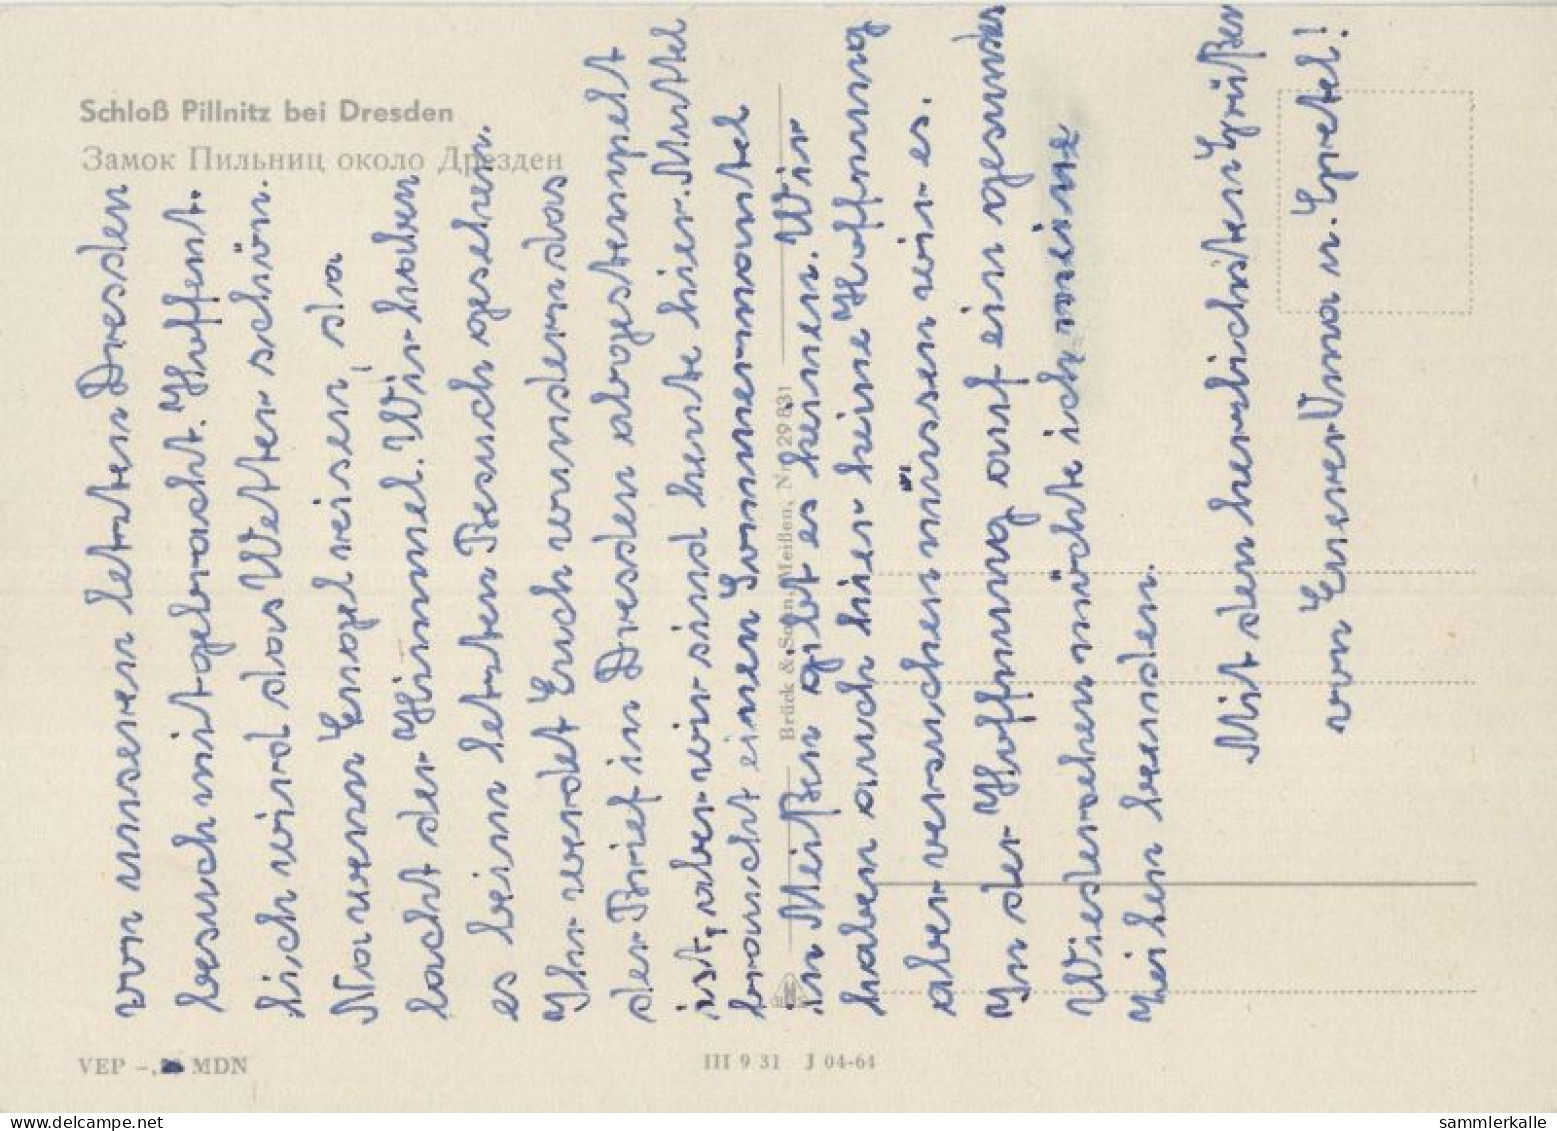 Schloß Pillnitz bei Dresden
Замок Пильниц около Дрезден
von unseren letzten Dresden
besuch mitgebracht. Hoffent.
lich wird das Wetter schön.
Na wenn Engel reisen, da
lacht der Himmel. Wir haben
es beim letzten Besuch gesehen.
Ihr werdet Euch wundern das
der Brief in Dresden abgestempelt
ist, aber wir sind heute hier. Muttel
braucht einen Sommermantel
in Meißen gibt es keinen. Wir
haben auch hier keine Hoffnung
aber versuchen müssen wir es.
In der Hoffnung auf ein gesundes
Wiedersehen möchte ich meine
Zeilen beenden.
Mit den herzlichsten Grüßen
von Eurer Oma u. Gretel!
Brück & Sohn, Meißen, Nr. 29 831
VEP –, MDN
III 9 31 J 04-64
sammlerkalle